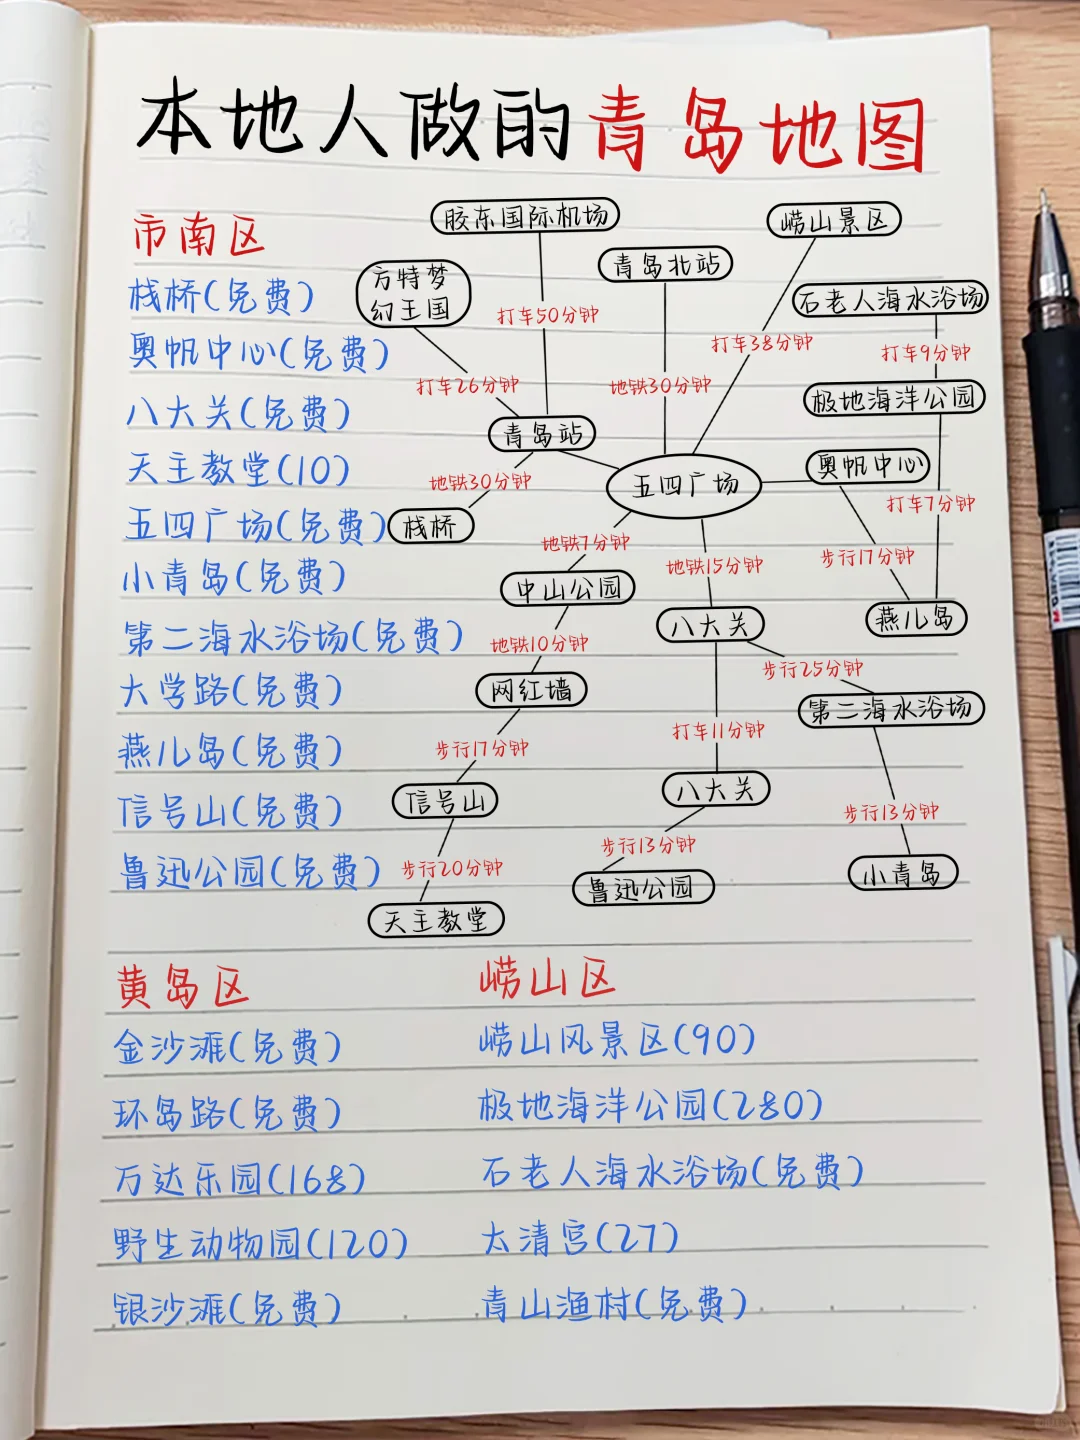 本地人做的青岛地图
市南区
栈桥(免费)
奥帆中心(免费)
八大关(免费)
天主教堂(10)
五四广场(免费)
小青岛(免费)
第二海水浴场(免费)
大学路(免费)
燕儿岛(免费)
信号山(免费)
鲁迅公园(免费)
胶东国际机场
崂山景区
青岛北站
方特梦
幻王国
石老人海水浴场
打车50分钟
打车38分钟
打车9分钟
打车26分钟
地铁30分钟
极地海洋公园
青岛站
五四广场
奥帆中心
地铁30分钟
打车7分钟
栈桥
地铁7分钟
地铁15分钟
步行17分钟
中山公园
八大关
燕儿岛
地铁10分钟
步行25分钟
网红墙
第二海水浴场
步行17分钟
打车11分钟
信号山
八大关
步行13分钟
步行13分钟
步行20分钟
鲁迅公园
小青岛
天主教堂
黄岛区
金沙滩(免费)
环岛路(免费)
万达乐园(168)
野生动物园(120)
银沙滩(免费)
崂山区
崂山风景区(90)
极地海洋公园(280)
石老人海水浴场(免费)
太清宫(27)
青山渔村(免费)